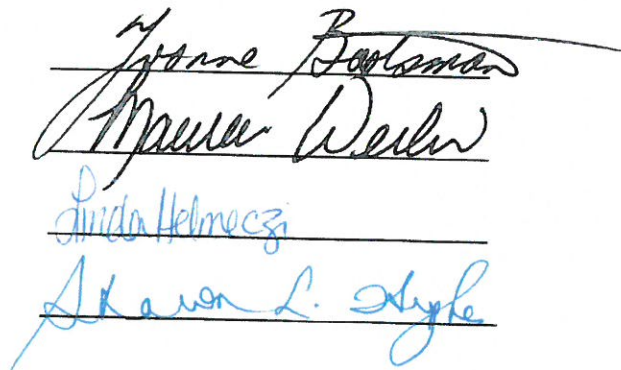 Yvonne Bootsman
Maureen
Linda Helmeczi
Sharon L. Hughes